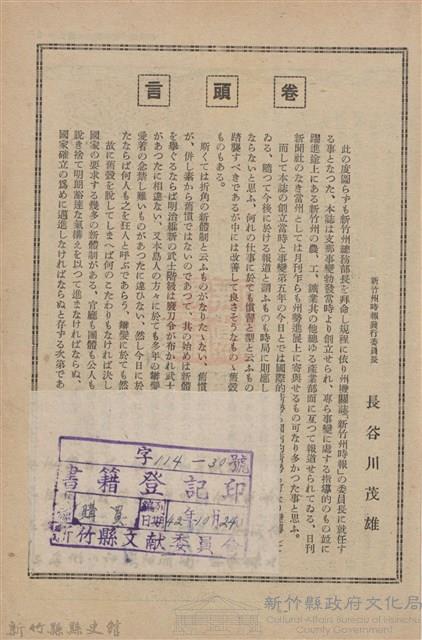 卷頭言
新竹州時報發行委員長
長谷川茂雄
此の度圖らずも新竹州總務部長を拜命し規程に依り州機關誌「新竹州時報」の委員長に就任す
る事となつた、本誌は支那事變勃發當時より創立せられ、專ら事變に處する指導的のもの竝に
躍進途上にある新竹州の農、工、鑛業其の他總ゆる產業部面に亙つて報道せられてゐる、日刊
新聞社のなき當州としては月刊乍らも州勢進展上に寄與せるもの可なり多かつた事と思ふ。
而して本誌の創立當時と事變第五年の今日とでは國際的
ゐる、隨つて今後に於ける報道と謂ふものも時局に則應し
ならないと思ふ、何れの仕事に於ても慣習と型と云ふもの
踏襲すべきであるが中には改善して良さそうなもの、舊殼
ものもある。
斯くては折角の新體制と云ふものがなりたゝない、舊慣
が、併し素から舊慣ではないのであつて、其の始めは新體
を擧ぐるならば明治維新の武士階級は廢刀令が布かれ武士
があつたに相違ない、又本島人の方々に於ても多年の辮髮
愛着の念禁じ難いものがあつたに違ひない、然し今日に於
たならば何人も之を狂人と呼ぶであらう、辮髮に於ても然
故に舊殼を脫してしまへば何のこだわりもなければ決し
國家の要求する幾多の新體制がある、官廳も團體も公人も
銳き捨て明朗豁達な氣構えを以つて進まなければならぬ、
國家確立の爲めに邁進しなければならぬと存ずる次第であ
字114-30號
書籍登記印
購買
編列日期42年10月24
新竹縣文献委員會
新竹縣縣史館
新竹縣政府文化局
Cultural Affairs Bureau of Hsinchu
County Government